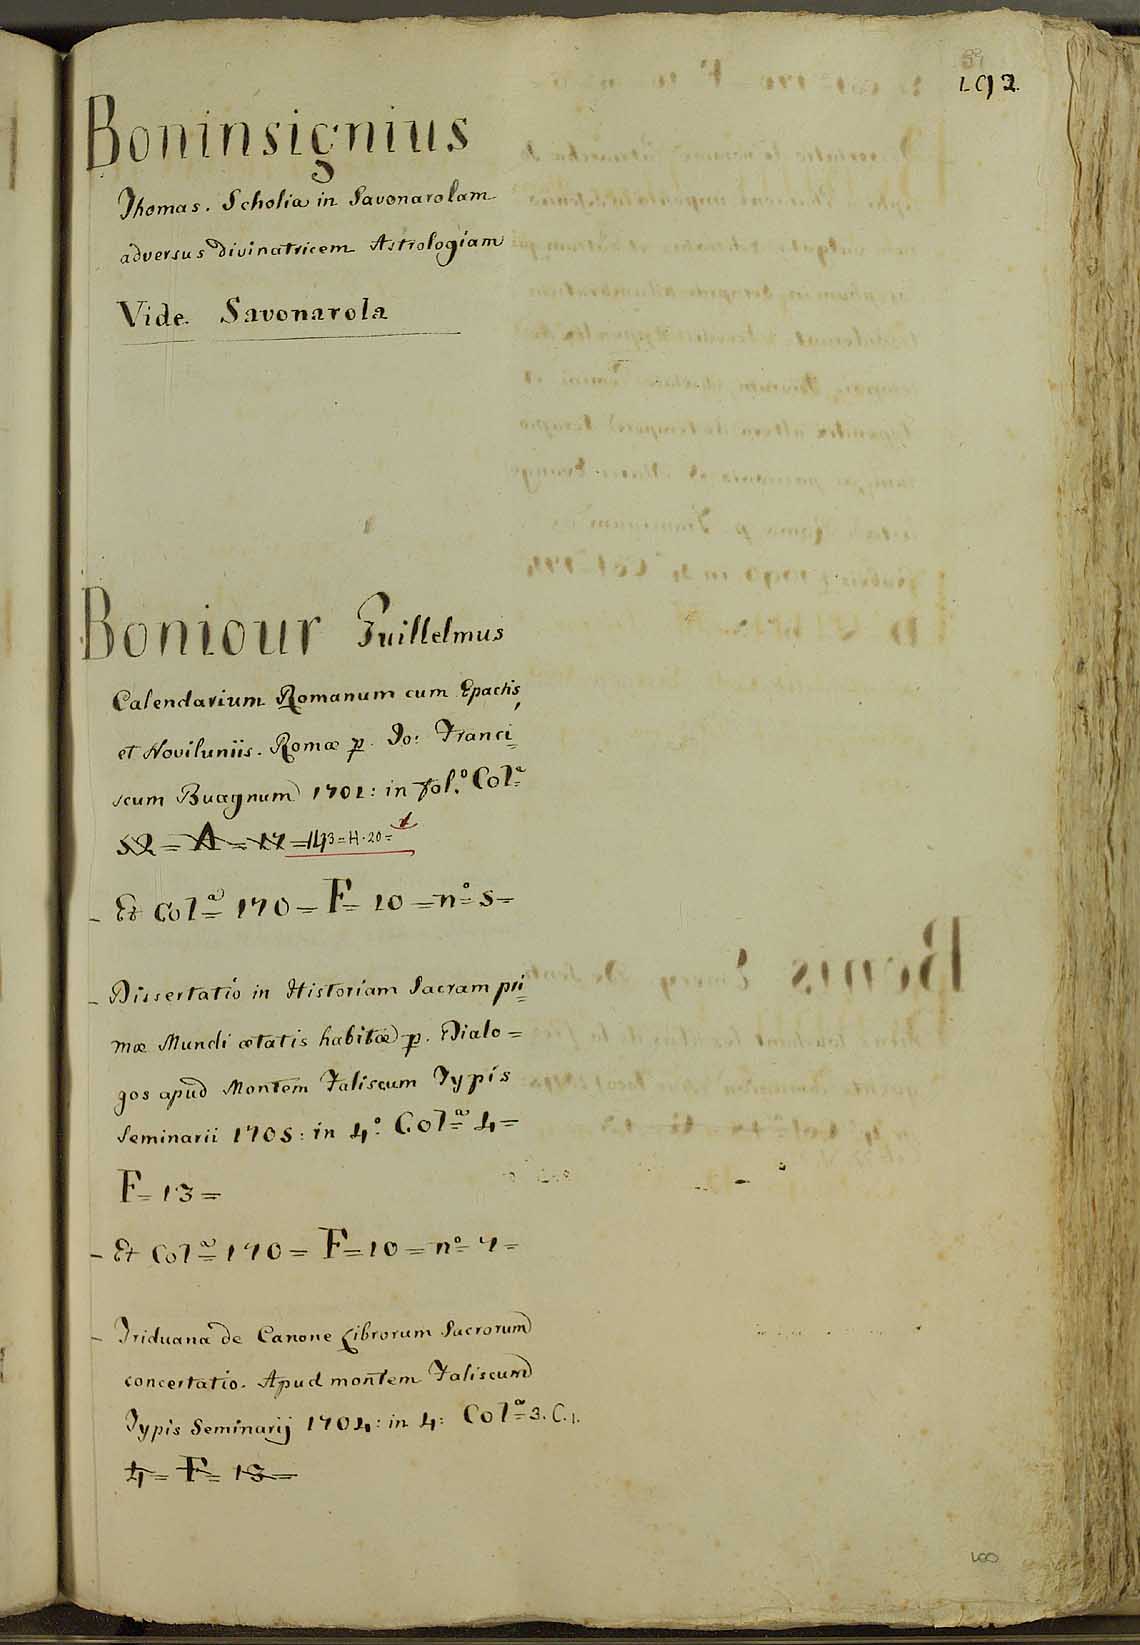 192.
Boninsignius
Thomas. Scholia in Savonarolam
adversus divinatricem Astrologiam
Vide Savonarola
Boniour Guillelmus
Calendarium Romanum cum Epactis,
et Noviluniis. Romæ p. Jo: Franci=
scum Buagnum 1701: in fol.º Colª=
52 = A = 17 = 143 = H · 20 =
- Et Colª= 170 = F= 10 = nº= 5 =
- Dissertatio in Historiam Sacram pri=
mæ Mundi ætatis habitæ p. Dialo=
gos apud Montem Faliscum Typis
Seminarii 1705: in 4º. Colª= 4=
F= 13 =
- Et Colª= 170 = F= 10 = nº= 7 =
- Triduana de Canone Librorum Sacrorum
concertatio. Apud montem Faliscum
Typis Seminarij 1704: in 4: Colª= 3. C. 1.
4= F= 13 =
100